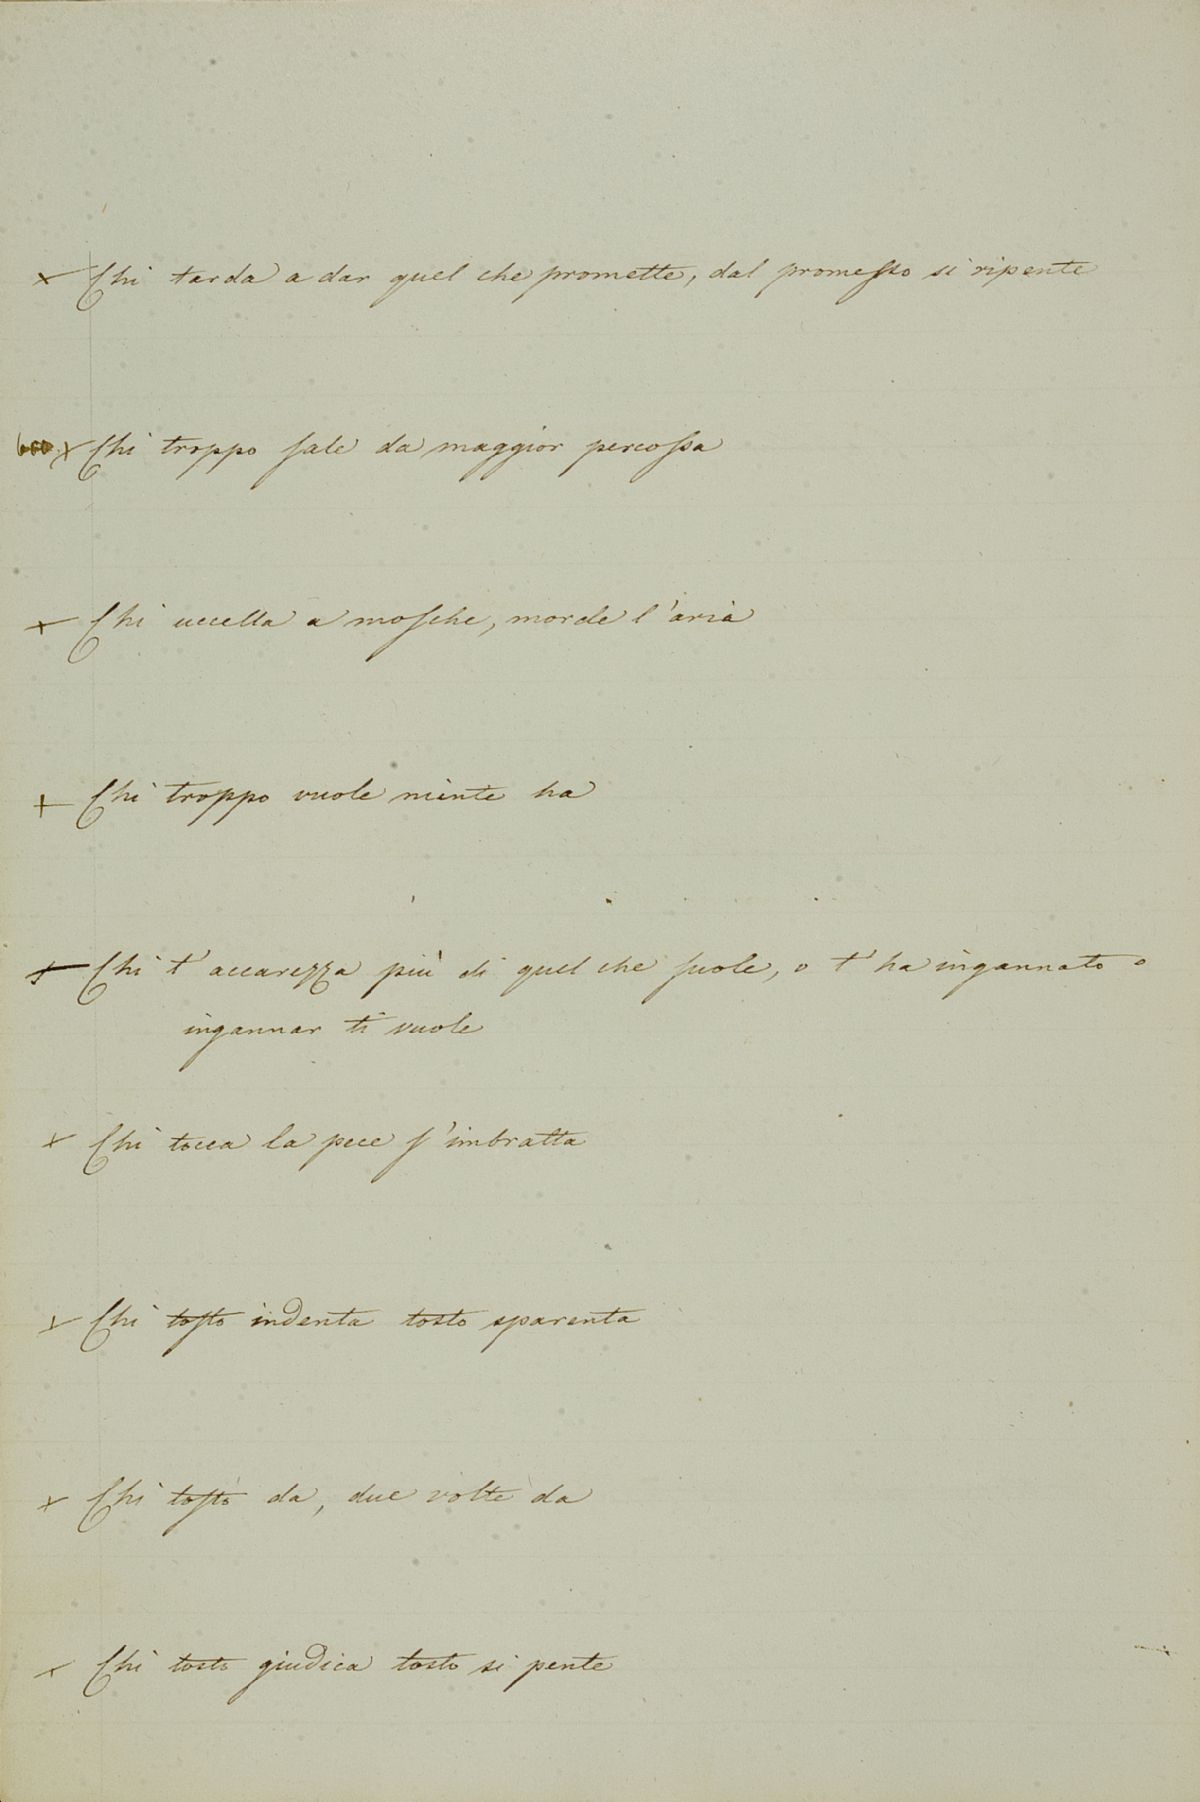 × Chi tarda a dar quel che promette, dal promesso si ripente
× Chi troppo sale da maggior percossa
× Chi uccella a mosche, morde l'aria
+ Chi troppo vuole niente ha
+ Chi t'accarezza più di quel che suole, o t'ha ingannato o
ingannar ti vuole
× Chi tocca la pece s'imbratta
× Chi tosto indenta tosto sparenta
× Chi tosto da, due volte da
× Chi tosto giudica tosto si pente